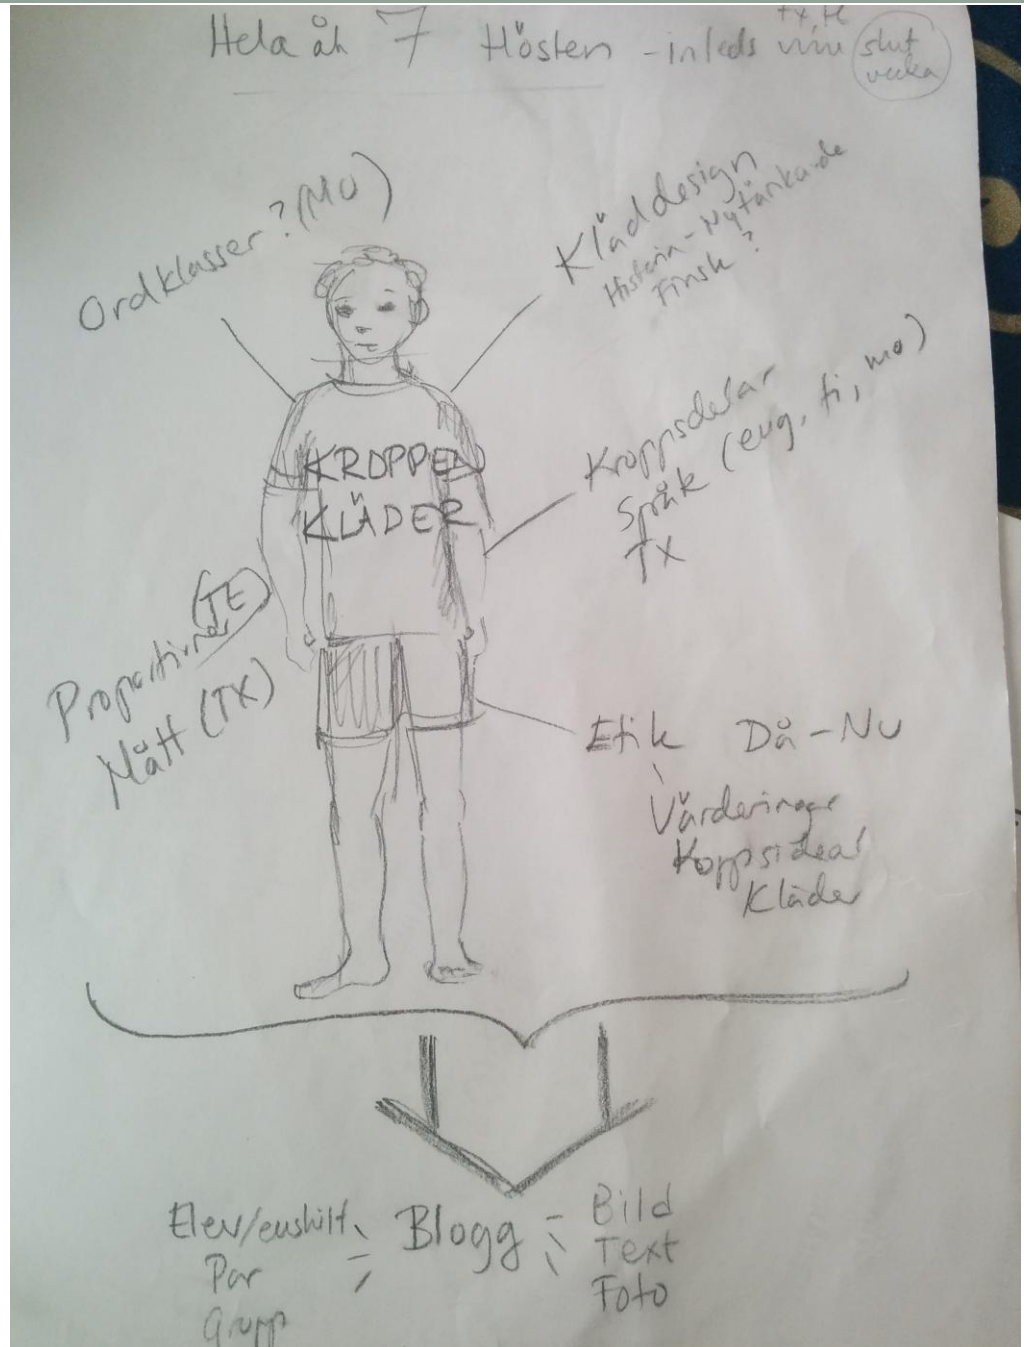 Hela åk 7 Hösten - inleds
tx, te
slut
vecka
Ordklasser? (MO)
Kläddesign
Historia - Nytänkande
Finsk?
KROPPEN
KLÄDER
Kroppsdelar
Språk (eng, fi, mo)
TX
Proportioner (TE)
Mått (TX)
Etik Då - Nu
Värderingar
Koppsideal
Kläder
Elev/enskilt
Par
Grupp
Blogg
Bild
Text
Foto